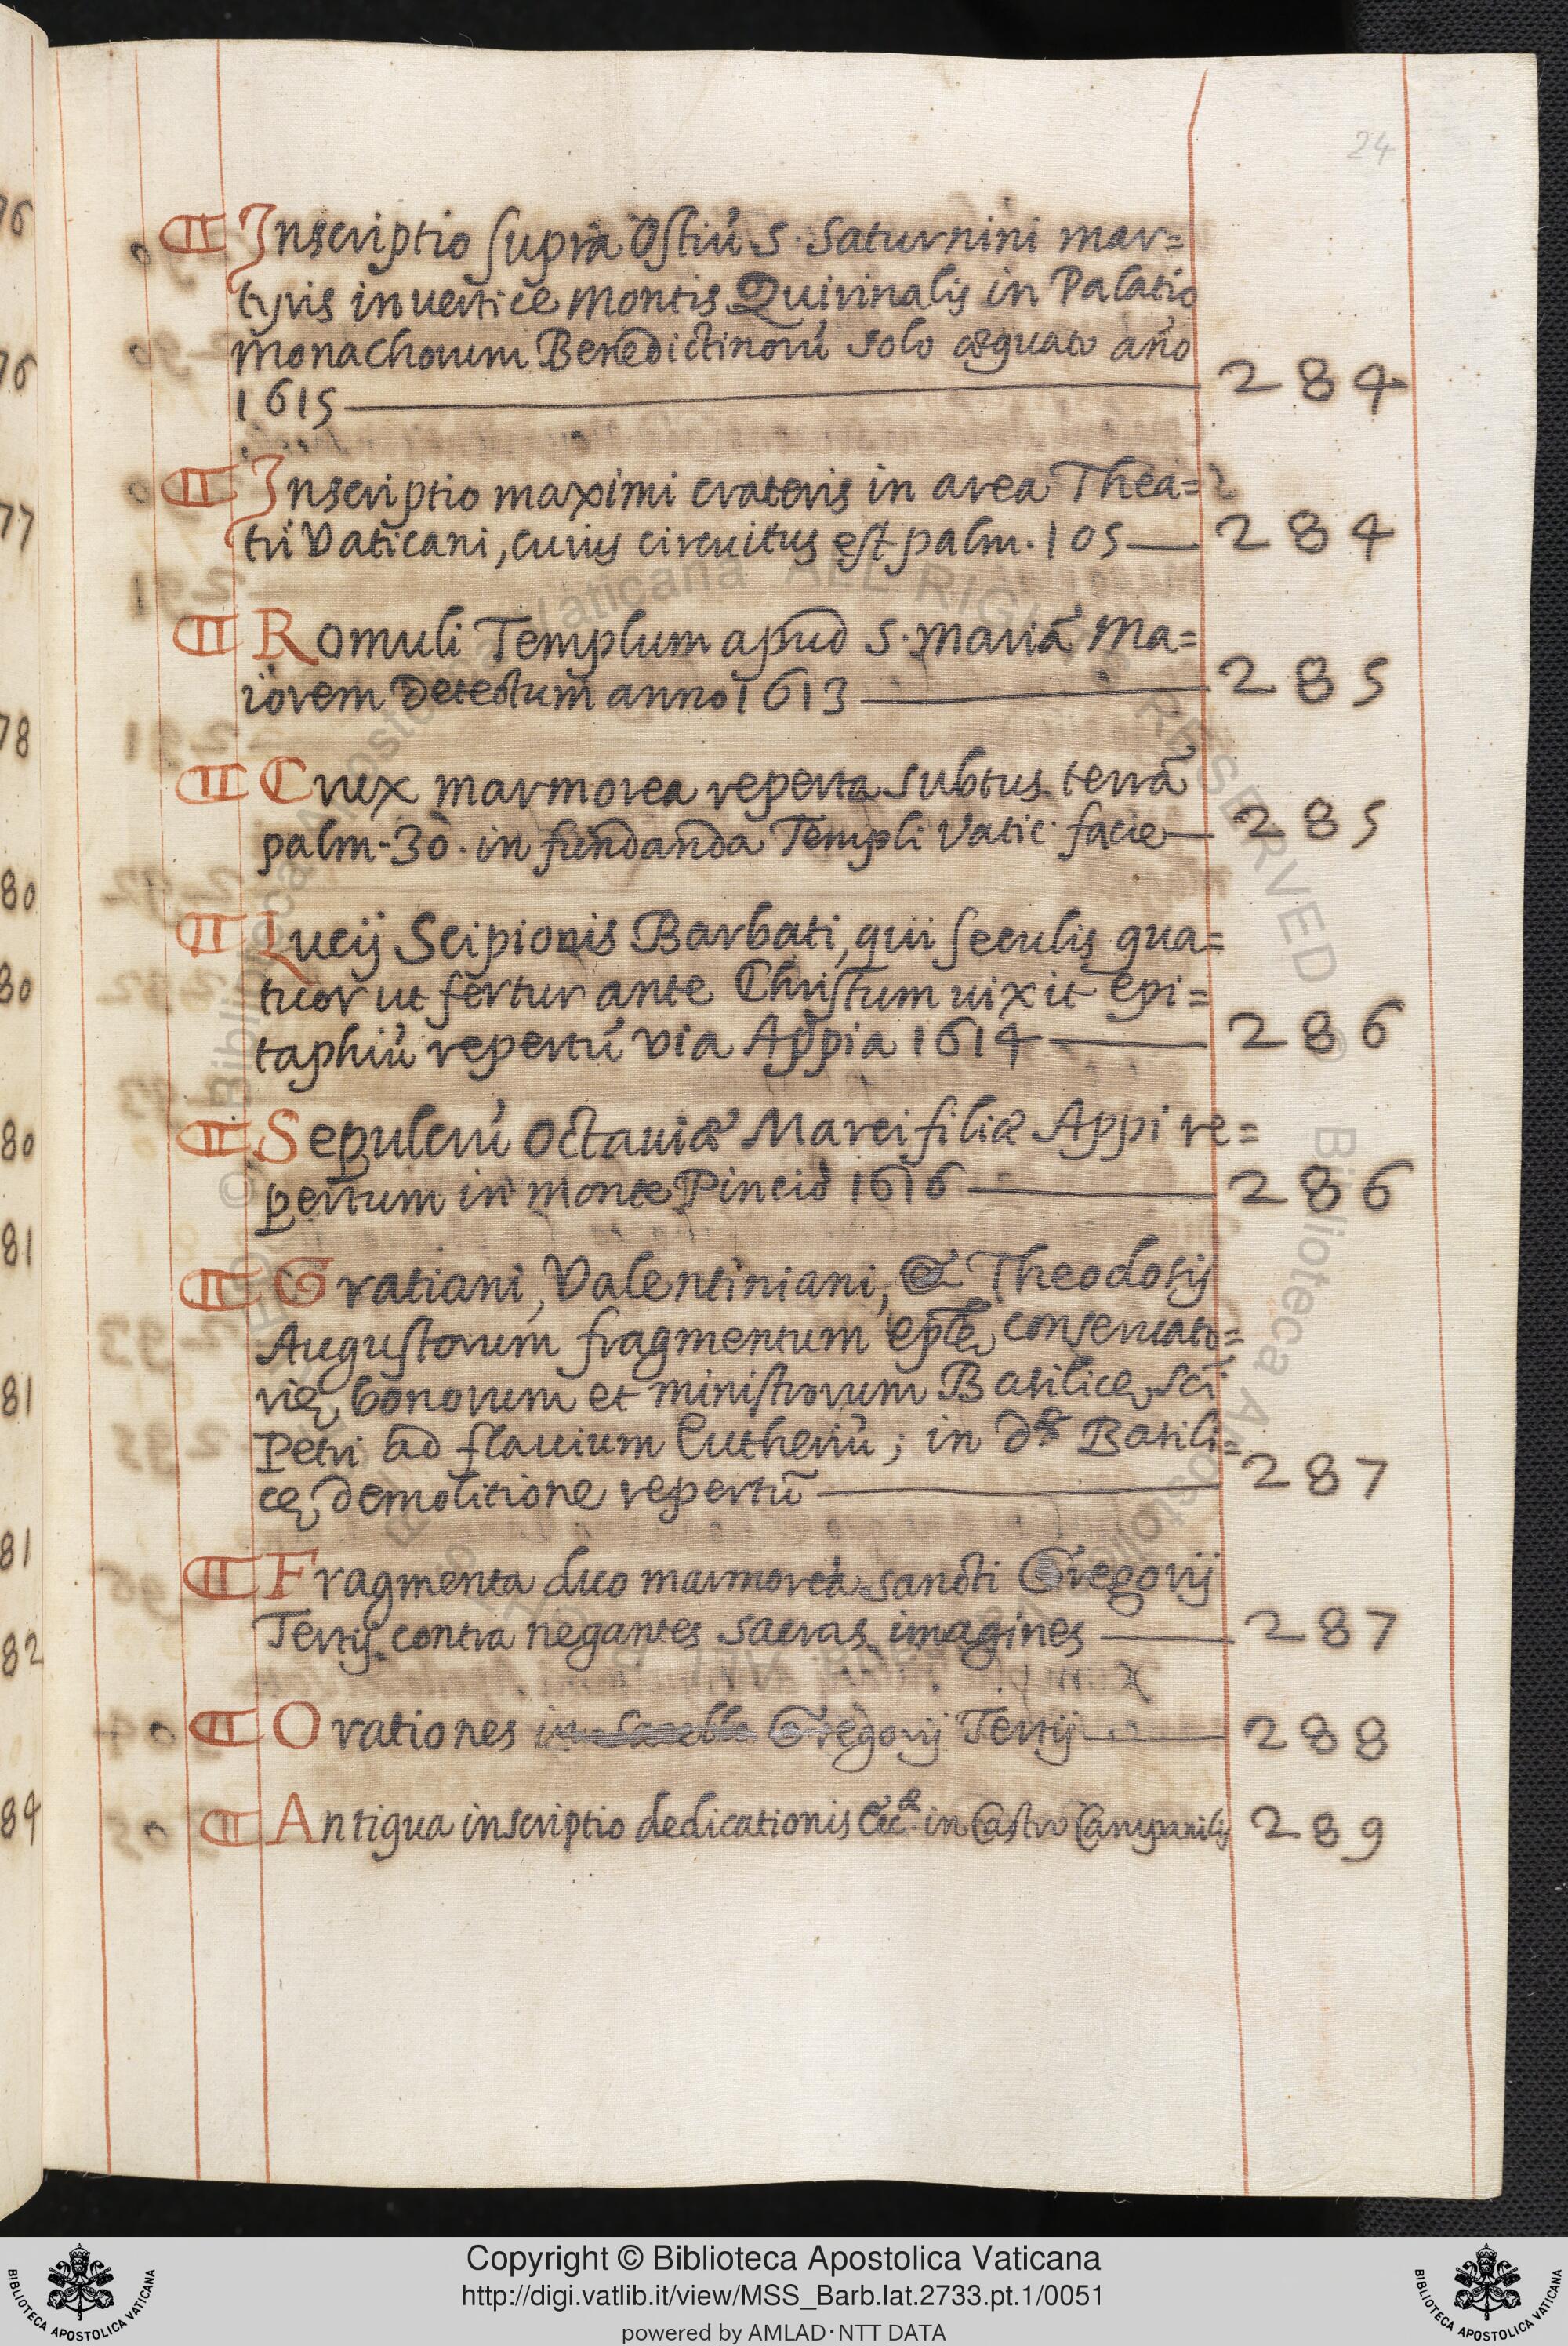 24
¶ Inscriptio supra Ostiũ S. Saturnini mar=
tyris in uertice montis Quirinalis in Palatio
monachorum Benedictinorũ solo æquato año
1615 284
¶ Inscriptio maximi crateris in area Thea=
tri Vaticani, cuius circuitus est palm. 105 284
¶ Romuli Templum apud S. Mariã Ma=
iorem detectum anno 1613 285
¶ Crux marmorea reperta subtus terrã
palm. 30. in fundanda Templi Vatic. facie 285
¶ Lucij Scipionis Barbati, qui seculis qua=
tuor ut fertur ante Christum uixit epi=
taphiũ repertũ via Appia 1614 286
¶ Sepulcrũ Octauiæ Marci filiæ Appi re=
pertum in monte Pincio 1616 286
¶ Gratiani, Valentiniani, & Theodosij
Augustorum fragmentum eplę conseruato=
rię bonorum et ministrorum Basilicę sci
Petri ad flauium Eutheriũ; in dᵃ Basili=
cę demolitione repertũ 287
¶ Fragmenta duo marmorea sancti Gregorij
Tertij contra negantes sacras imagines 287
¶ Orationes in Sacello Gregorij Tertij 288
¶ Antiqua inscriptio dedicationis Eccᵃ in Castro Campanilis 289
76
76
77
78
80
80
80
81
81
81
82
84
Copyright © Biblioteca Apostolica Vaticana
http://digi.vatlib.it/view/MSS_Barb.lat.2733.pt.1/0051
powered by AMLAD·NTT DATA
BIBLIOTECA APOSTOLICA VATICANA
BIBLIOTECA APOSTOLICA VATICANA